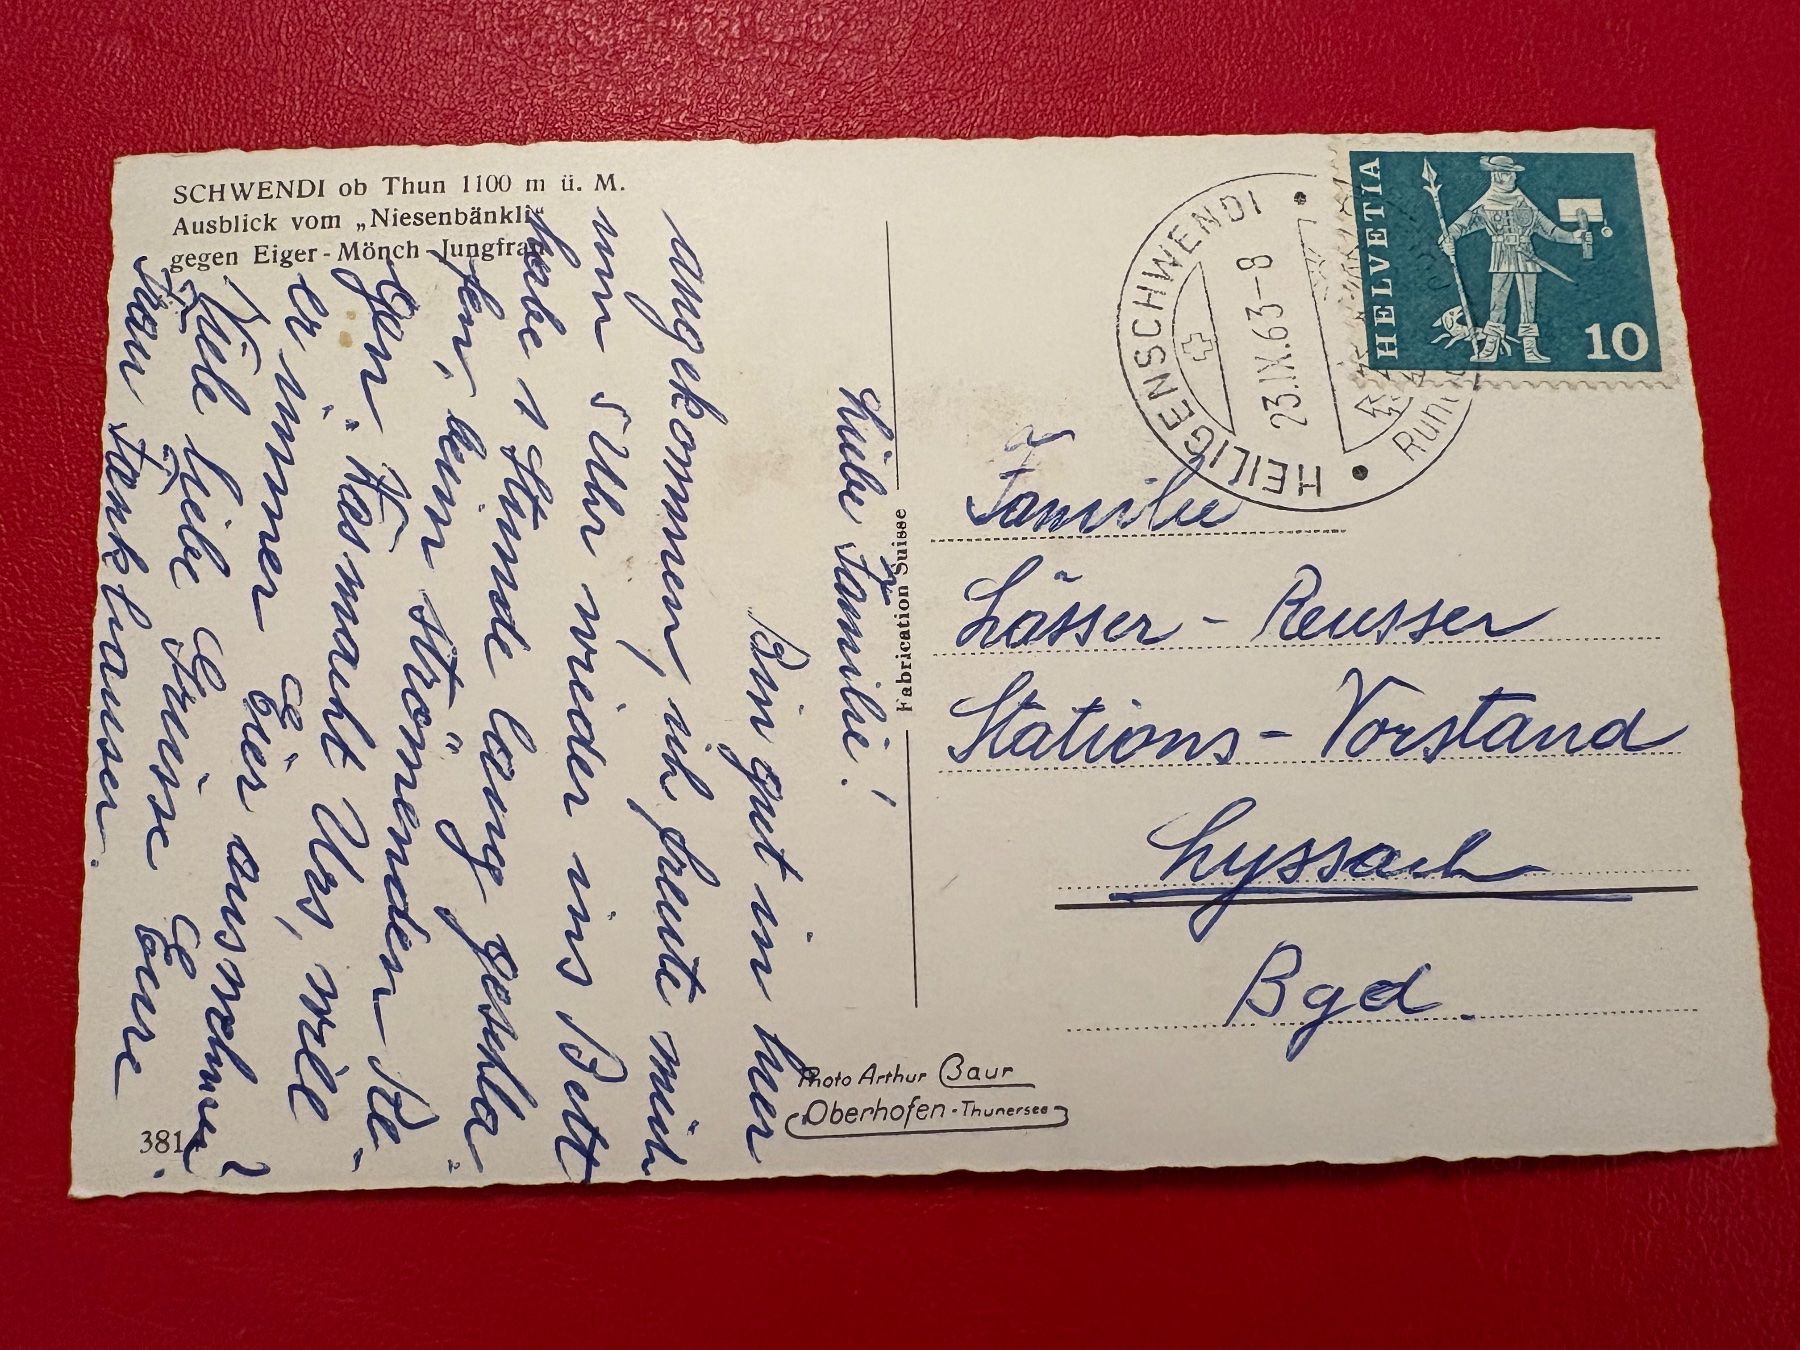 SCHWENDI ob Thun 1100 m ü. M.
Ausblick vom „Niesenbänkli“
gegen Eiger - Mönch - Jungfrau
Liebe Familie!
Bin gut in hier
angekommen, ich heute mich
um 5 Uhr wieder ins Bett
habe 1 Stunde lang geschla
fen, beim strömenden Re
gen. Was macht Urs, will
er immer Eier ausnehmen?
Viele liebe Grüsse Eure
Frau
381
Fabrication Suisse
Photo Arthur Baur
Oberhofen - Thunersee
HEILIGENSCHWENDI
23.IX.63-8
HELVETIA
10
Familie
Lässer - Reusser
Stations - Vorstand
Lyssach
Bgd.